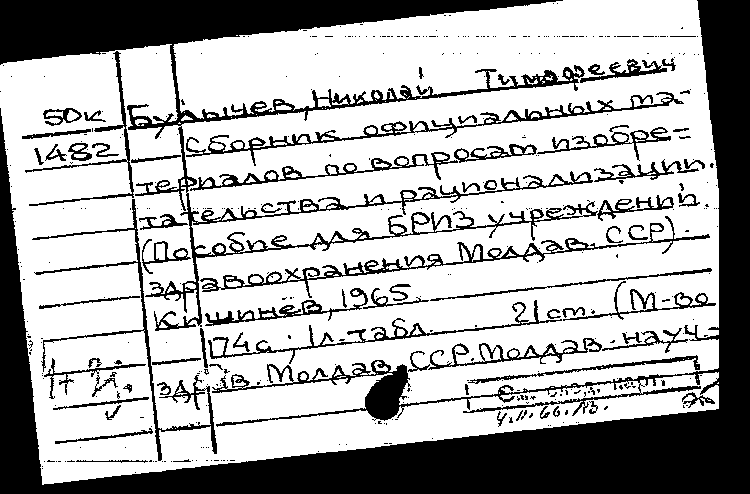 50к Булычев, Николай Тимофеевич
1482 Сборник официальных ма-
териалов по вопросам изобре=
тательства и рационализации.
(Пособие для БРИЗ учреждений
здравоохранения Молдав. ССР).
Кишинёв, 1965.
174с; 1л. табл. 21 ст. (М-во
1+
здрав. Молдав. ССР. Молдав. науч-
См. след. карт.
4.II.66.